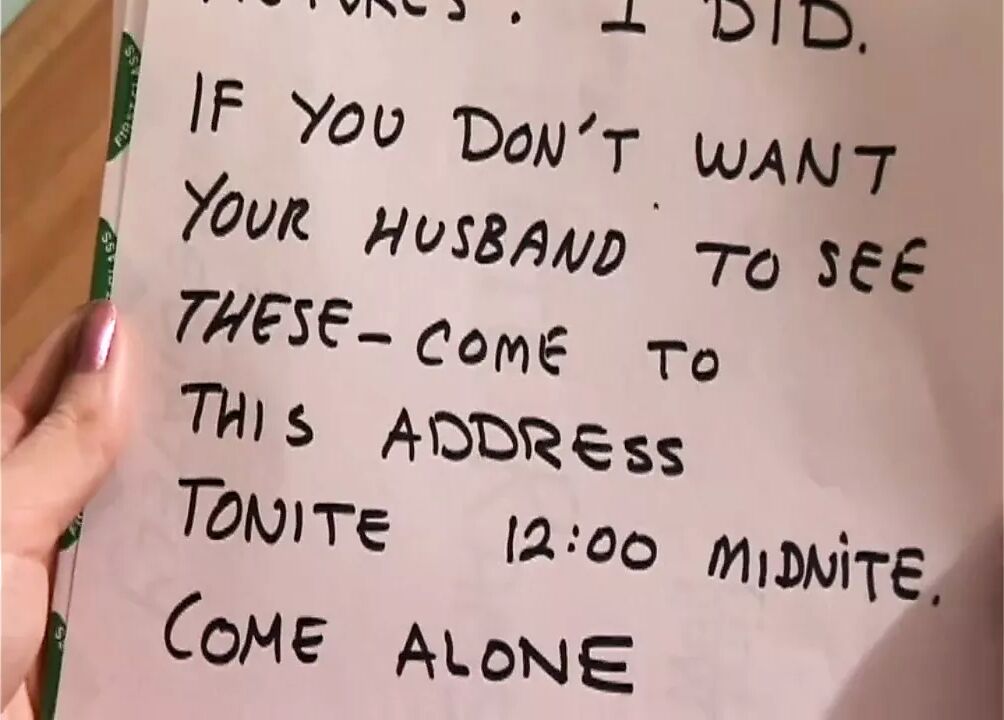 PICTURES. I DID.
IF YOU DON'T WANT
YOUR HUSBAND TO SEE
THESE- COME TO
THIS ADDRESS
TONITE 12:00 MIDNITE.
COME ALONE
FIRST CLASS